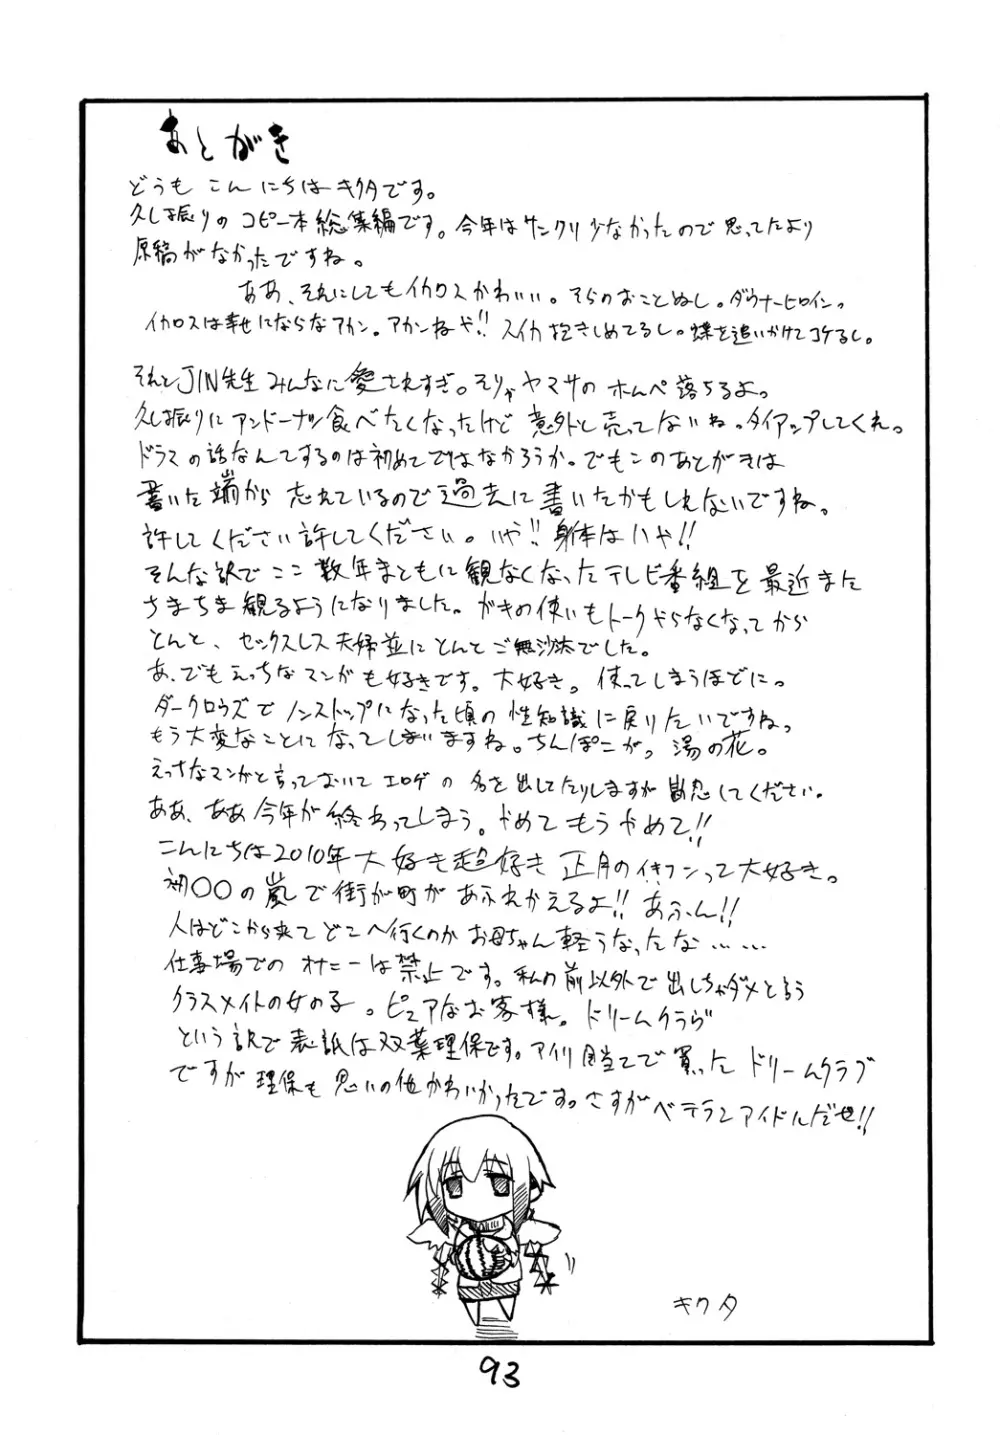 あとがき
どうも こんにちは キクタです。
久し振りの コピー本総集編です。今年はサンクリ少なかったので思ってたより
原稿がなかったですね。
ああ、それにしてもイカロスかわいい。そらのおとしぬし。ダウナーヒロイン。
イカロスは幸せにならなアカン。アカンねや!! スイカ抱きしめてるし。蝶を追いかけてコケるし。
それとJIN先生みんなに愛されすぎ。そりゃヤマサのホムペ落ちるよ。
久し振りにアンドーナツ食べたくなったけど意外と売ってないね。タイアップしてくれ。
ドラマの話なんてするのは初めてではなかろうか。でもこのあとがきは
書いた端から忘れているので過去に書いたかもしれないですね。
許してください許してください。いや!! 身体はいや!!
そんな訳でここ数年まともに観なくなったテレビ番組を最近また
ちまちま観るようになりました。ガキの使いもトークやらなくなってから
とんと、セックスレス夫婦並にとんとご無沙汰でした。
あ、でもえっちなマンガも好きです。大好き。使ってしまうほどに。
ダークロウズでノンストップになった頃の性知識に戻りたいですね。
もう大変なことになってしまいますね。ちんぽこがっ 湯の花。
えっちなマンガと言っておいてエロゲの名を出してたりしますが勘忍してください。
ああ、ああ今年が終わってしまう。やめてもうやめて!!
こんにちは2010年大好き超好き正月のイキフンって大好き。
初〇〇の嵐で街が町があふれかえるよ!! あふん!!
人はどこから来てどこへ行くのかお母ちゃん軽うなったな……
仕事場でのオナニーは禁止です。私の前以外で出しちゃダメと言う
クラスメイトの女の子。ピュアなお客様。ドリームクラヴ
という訳で表紙は双葉理保です。アイリ目当てで買ったドリームクラブ
ですが理保も思いの他かわいかったです。さすがベテランアイドルだぜ!!
キクタ
93